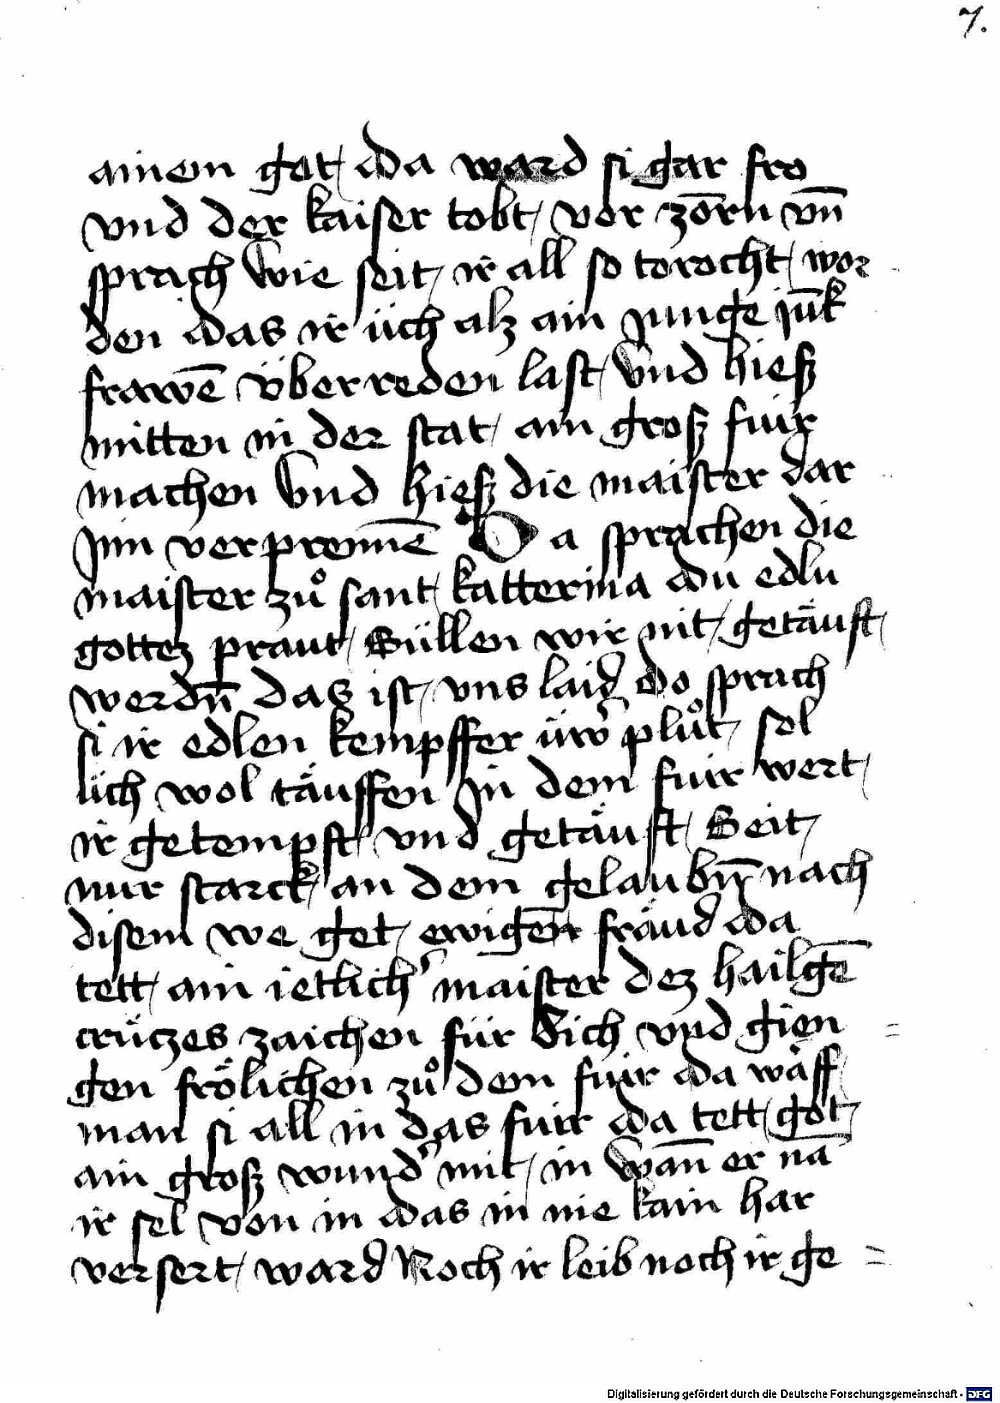 7.
ainen got da ward si gar fro
vnd der kaiser tobt vor zorñ vn̄
sprach Wie seit ir all so torocht wor
den das ir üch alz ain junge ju̅k
frawē über reden last Vnd hieß
mitten in der stat ain groß fuir
machen Vnd hieß die maister dar
jnn verprennē Da sprachen die
maister zuͦ sant katterina du edlu
gottez praut Süllen wir nit getäuft
werdn̄ das ist vns laid do sprach
si ir edlen kempffer üwʼ pluͦt sel
lich wol täuffen In dem fuir wert
ir getempft vnd getäuft Seit
nur starck an dem gelaubn̄ nach
disem we get ewigen fräud da
tett ain ietlichʼ maister dez hailgē
crützes zaichen für Sich vnd gien
gen frölichen zuͦ dem fuir da wäff
man si all in das fuir da tett got
ain groß wundʼ mit in Wan̄ er nā
ir sel von in das in nie kain har
versert ward Noch ir leib noch ir ge
Digitalisierung gefördert durch die Deutsche Forschungsgemeinschaft - DFG